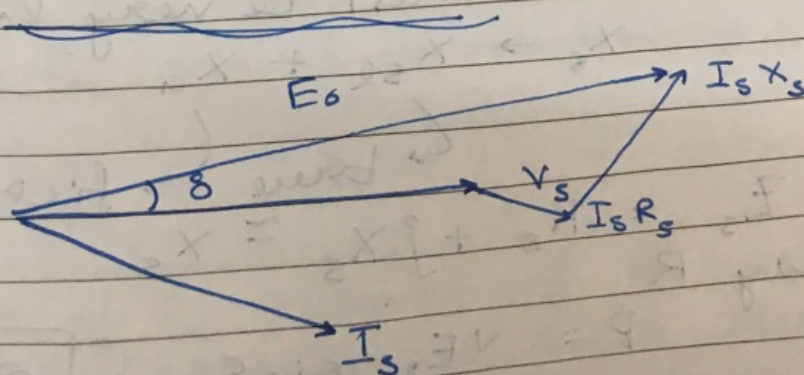 E₀
I_s X_s
δ
V_s
I_s R_s
I_s